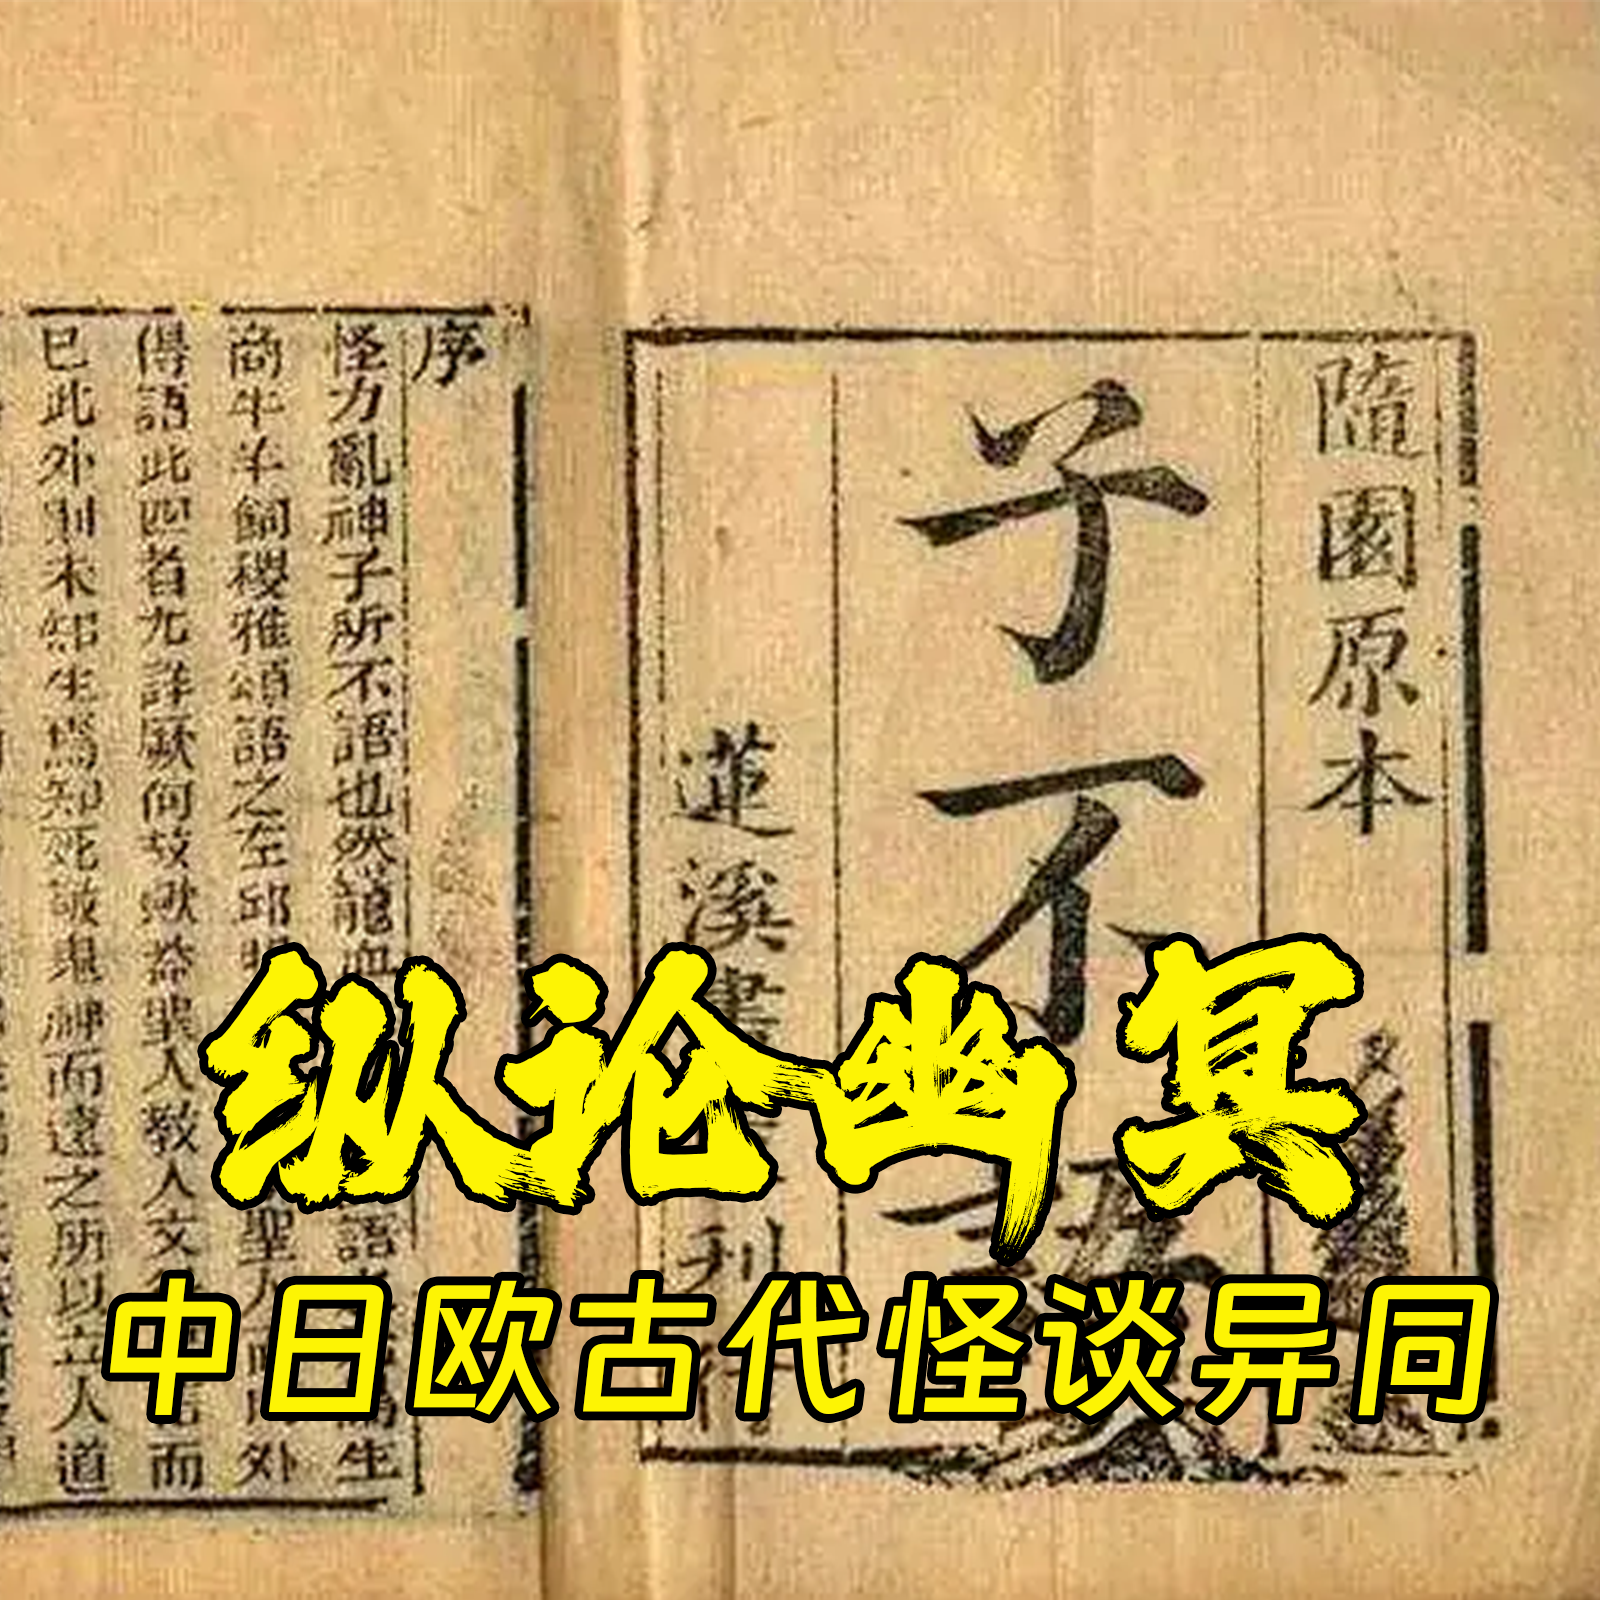 隨園原本
子不語
蓮溪書 刊行
序
怪力亂神子所不語也然龍血 語 生
商牛羊飼稷雅頌語之左邱 聖人 外
得語此四者尤詳厥何故歟蓋聖人教人文 而
已此外則未知生焉知死敬鬼神而遠之所以立人道
纵论幽冥
中日欧古代怪谈异同